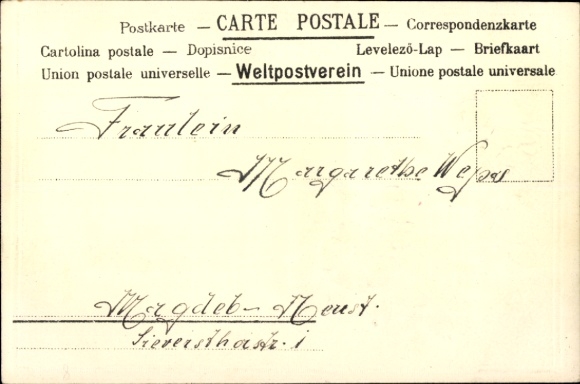 Postkarte — CARTE POSTALE — Correspondenzkarte
Cartolina postale — Dopisnice Levelező-Lap — Briefkaart
Union postale universelle — Weltpostverein — Unione postale universale
Fräulein
Margarethe
Magdeb- Neust.
1